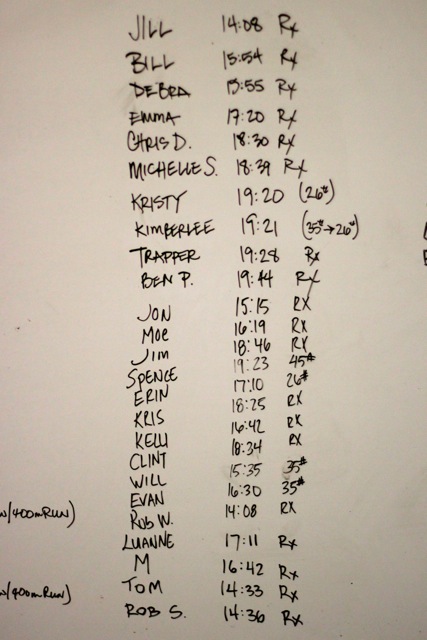 JILL 14:08 Rx
BILL 15:54 Rx
DEBRA 15:55 Rx
EMMA 17:20 Rx
CHRIS D. 18:30 Rx
MICHELLE S. 18:39 Rx
KRISTY 19:20 (26#)
KIMBERLEE 19:21 (35#→26#)
TRAPPER 19:28 Rx
BEN P. 19:44 Rx
JON 15:15 RX
MOE 16:19 RX
JIM 18:46 RX
SPENCE 19:23 45#
ERIN 17:10 26#
KRIS 18:25 RX
KELLI 16:42 RX
CLINT 18:34 RX
WILL 15:35 35#
EVAN 16:30 35#
w/400m RUN) ROB W. 14:08 RX
LUANNE 17:11 Rx
M 16:42 Rx
w/400m RUN) TOM 14:33 Rx
ROB S. 14:36 Rx